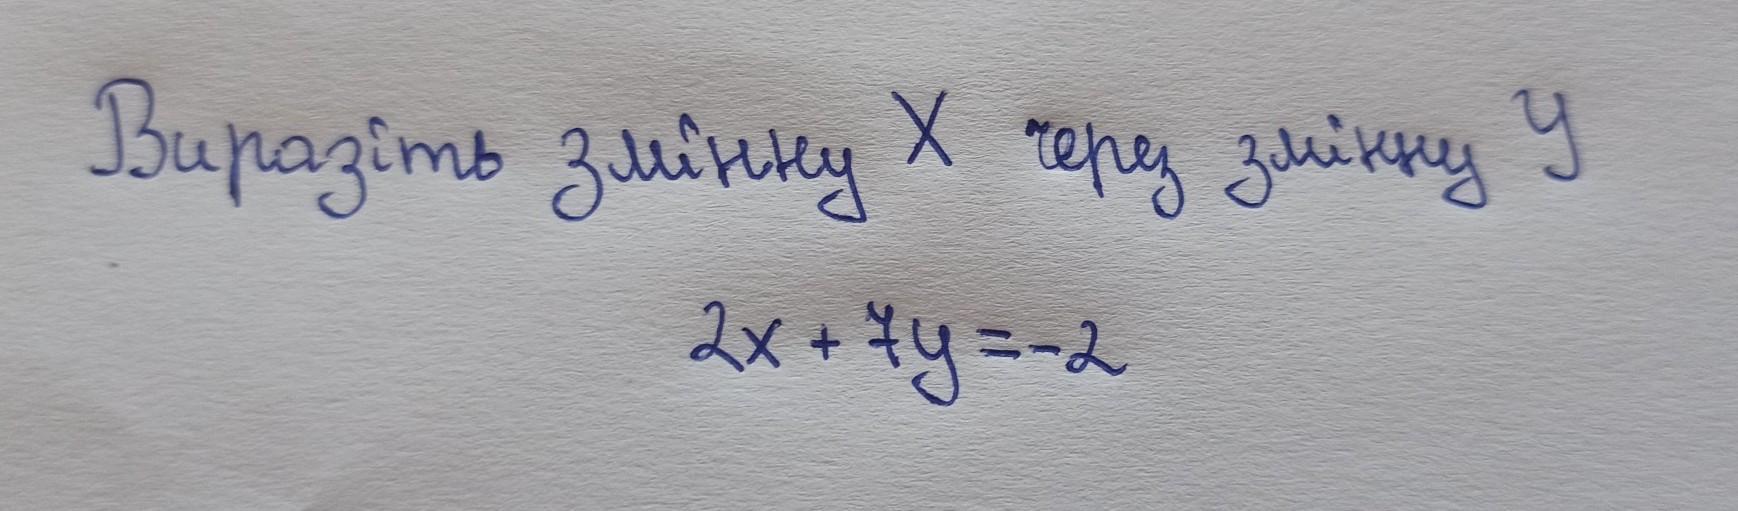 Виразіть змінну X через змінну У
2x + 7y = -2